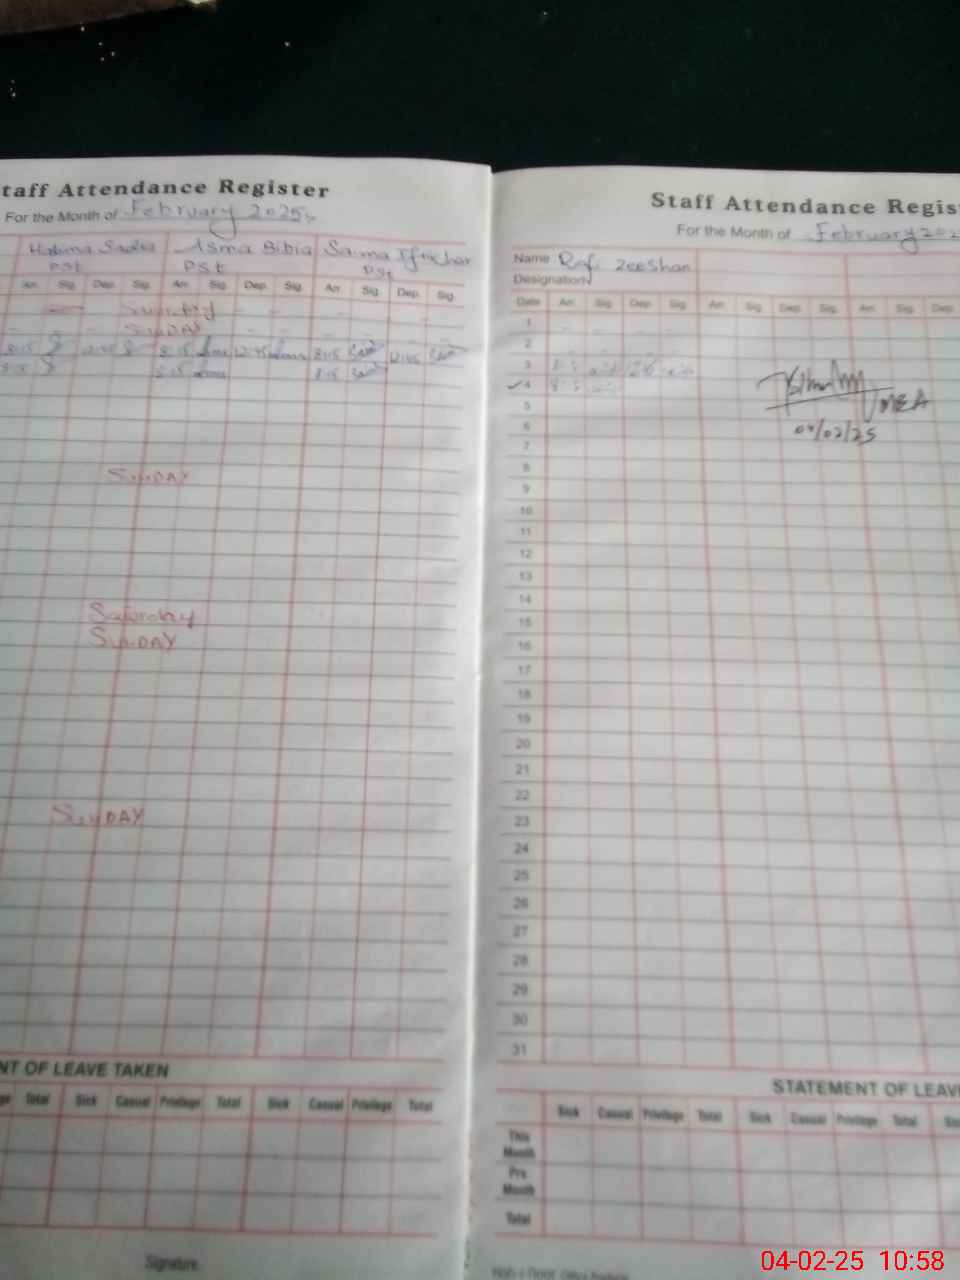 taff Attendance Register
For the Month of February 2025
Asma Bibia Saima Iftikhar
PSt PSt PSt
Arr. Sig. Dep. Sig. Arr. Sig. Dep. Sig. Arr. Sig. Dep. Sig.
Saturday
SUNDAY
8:15 8:15 12:45 8:15 12:45
8:15 8:15 8:15
SUNDAY
Saturday
SUNDAY
SUNDAY
NT OF LEAVE TAKEN
ge Total Sick Casual Privilege Total Sick Casual Privilege Total
Signature
Staff Attendance Regist
For the Month of February 202
Name Rafi Zeeshan
Designation
Date Arr. Sig. Dep. Sig. Arr. Sig. Dep. Sig. Arr. Sig. Dep.
1
2
3
4
MEA
04/02/25
5
6
7
8
9
10
11
12
13
14
15
16
17
18
19
20
21
22
23
24
25
26
27
28
29
30
31
STATEMENT OF LEAV
Sick Casual Privilege Total Sick Casual Privilege Total
This Month
Pre Month
Total
04-02-25 10:58